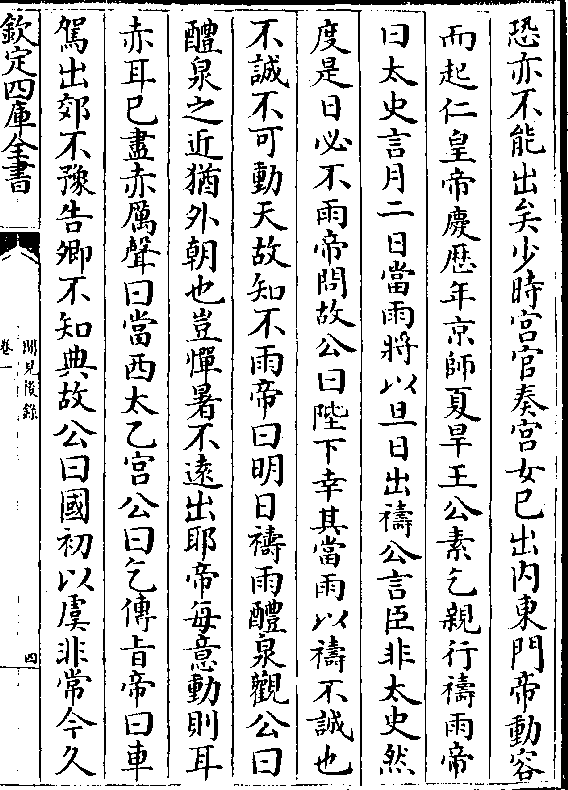 恐亦不能出矣少時宫官奏宫女已出内東門帝動容
而起仁皇帝慶厯年京師夏旱王公素乞親行禱雨帝
曰太史言月二日當雨將以旦日出禱公言臣非太史然
度是日必不雨帝問故公曰陛下幸其當雨以禱不誠也
不誠不可動天故知不雨帝曰明日禱雨醴泉觀公曰
醴泉之近猶外朝也豈憚暑不逺出耶帝每意動則耳
赤耳已盡赤厲聲曰當西太乙宫公曰乞傳㫖帝曰車
駕出郊不豫告卿不知典故公曰國初以虞非常今久
欽定四庫全書
聞見後錄
卷一
四